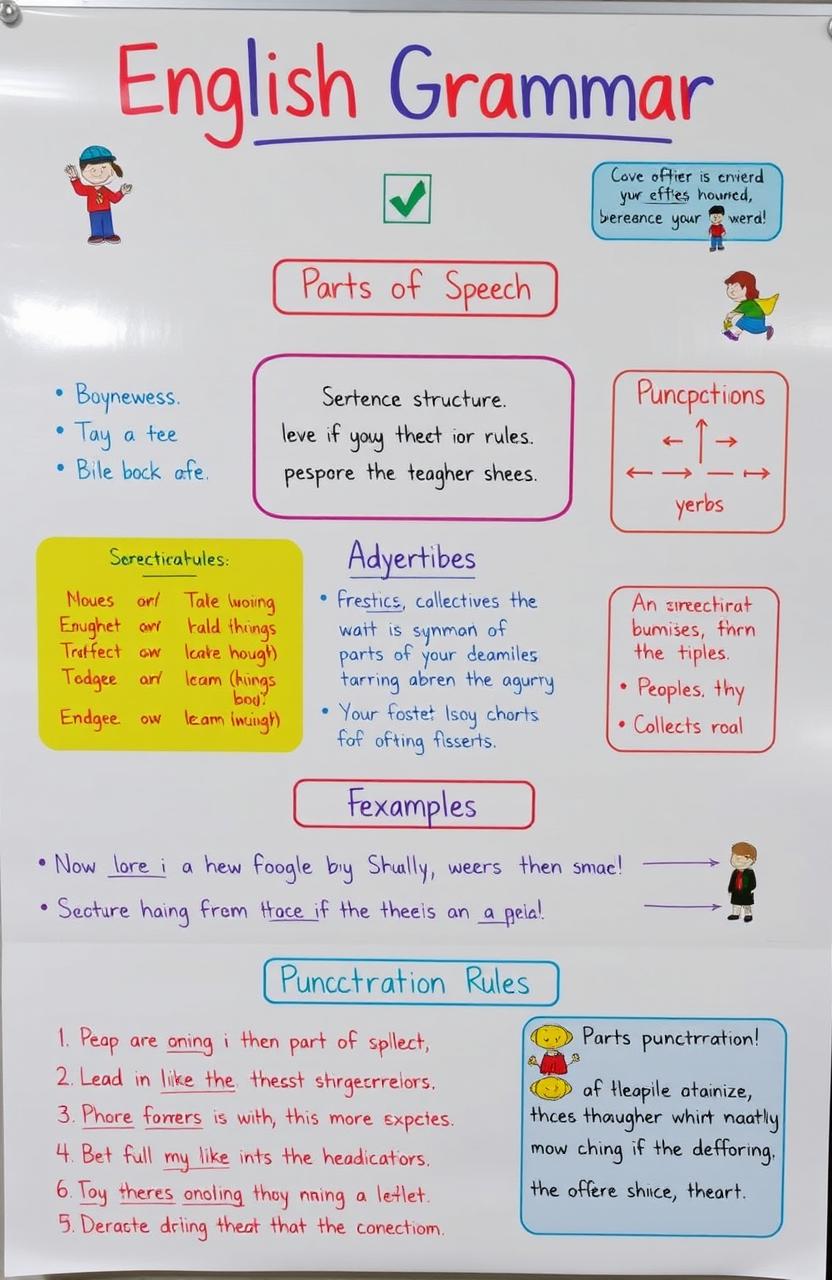 English Grammar
Cove offier is enierd
yur effies hourred,
bereance your werd!
Parts of Speech
• Boynewess.
• Tay a tee
• Bile bock afe.
Sertence structure.
leve if yoay thect ior rules.
pespore the teagher shees.
Puncpctions
yerbs
Sorecticatules:
Moues an/ Tale
Enughet an/ tald things
Tratfect aw
Todgee an/ leam
Endgee ow leam
Adyertibes
• Frestics, callectives the
waitt is synman of
parts of your deamiles
tarring abren the agurry
• Your fostet lsoy chorts
fof ofting fisserts.
An
bumises, thrn
the tiples.
• Peoples, thy
• Collects roal
Fexamples
• Now lore i a hew foogle biy Shally, weers then smac!
• Secture haing from ttace if the theeis an a peia!
Puncctration Rules
1. Peap are oning i then part of spllect,
2. Lead in like the thesst strgecrrelors.
3. Phore forrers is with, this more expcies.
4. Bet full my like ints the headicators.
6. Toy theres onoling thoy nning a letlet.
5. Deracte driing theat that the conectiom.
Parts punctrration!
af tleapile atainize,
thces thaugher whirt naatlly
mow ching if the defforing,
the offere shiice, theart.